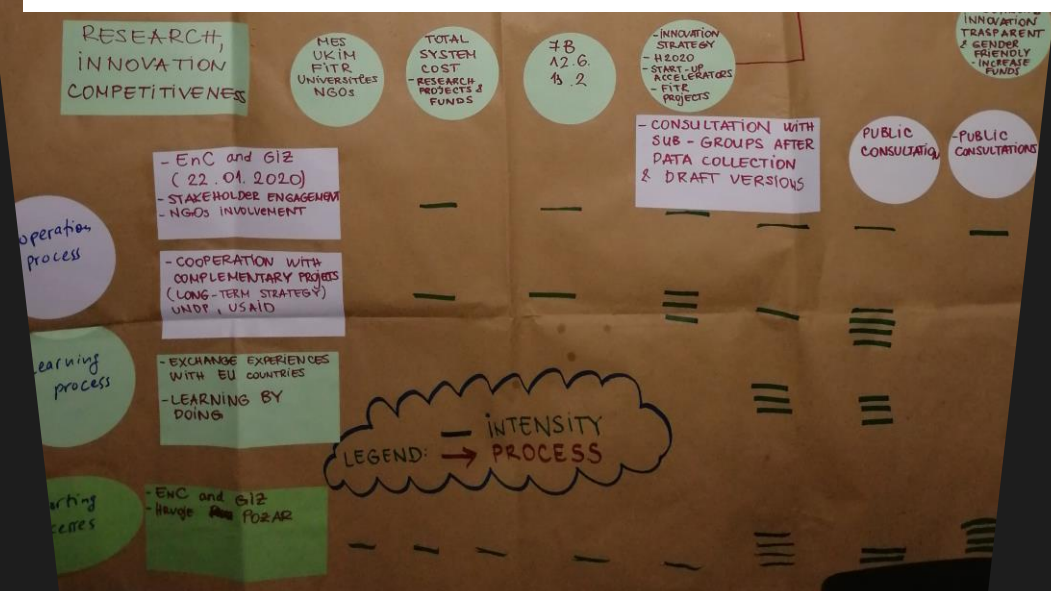 RESEARCH,
INNOVATION
COMPETITIVENESS
MES
UKIM
FITR
UNIVERSITIES
NGOs
TOTAL
SYSTEM
COST
- RESEARCH
PROJECTS &
FUNDS
7B
12.6.
13.2
- INNOVATION
STRATEGY
- H2020
- START-UP
ACCELERATORS
- FITR
PROJECTS
INNOVATION
TRASPARENT
& GENDER
FRIENDLY
- INCREASE
FUNDS
- CONSULTATION WITH
SUB-GROUPS AFTER
DATA COLLECTION
& DRAFT VERSIONS
PUBLIC
CONSULTATION
- PUBLIC
CONSULTATIONS
- EnC and GIZ
(22.01.2020)
- STAKEHOLDER ENGAGEMENT
- NGOs INVOLVEMENT
operation
process
- COOPERATION WITH
COMPLEMENTARY PROJETS
(LONG-TERM STRATEGY)
UNDP, USAID
earning
process
- EXCHANGE EXPERIENCES
WITH EU COUNTRIES
- LEARNING BY
DOING
LEGEND: — INTENSITY
→ PROCESS
orting
cesses
- ENC and GIZ
- Hrvoje POZAR